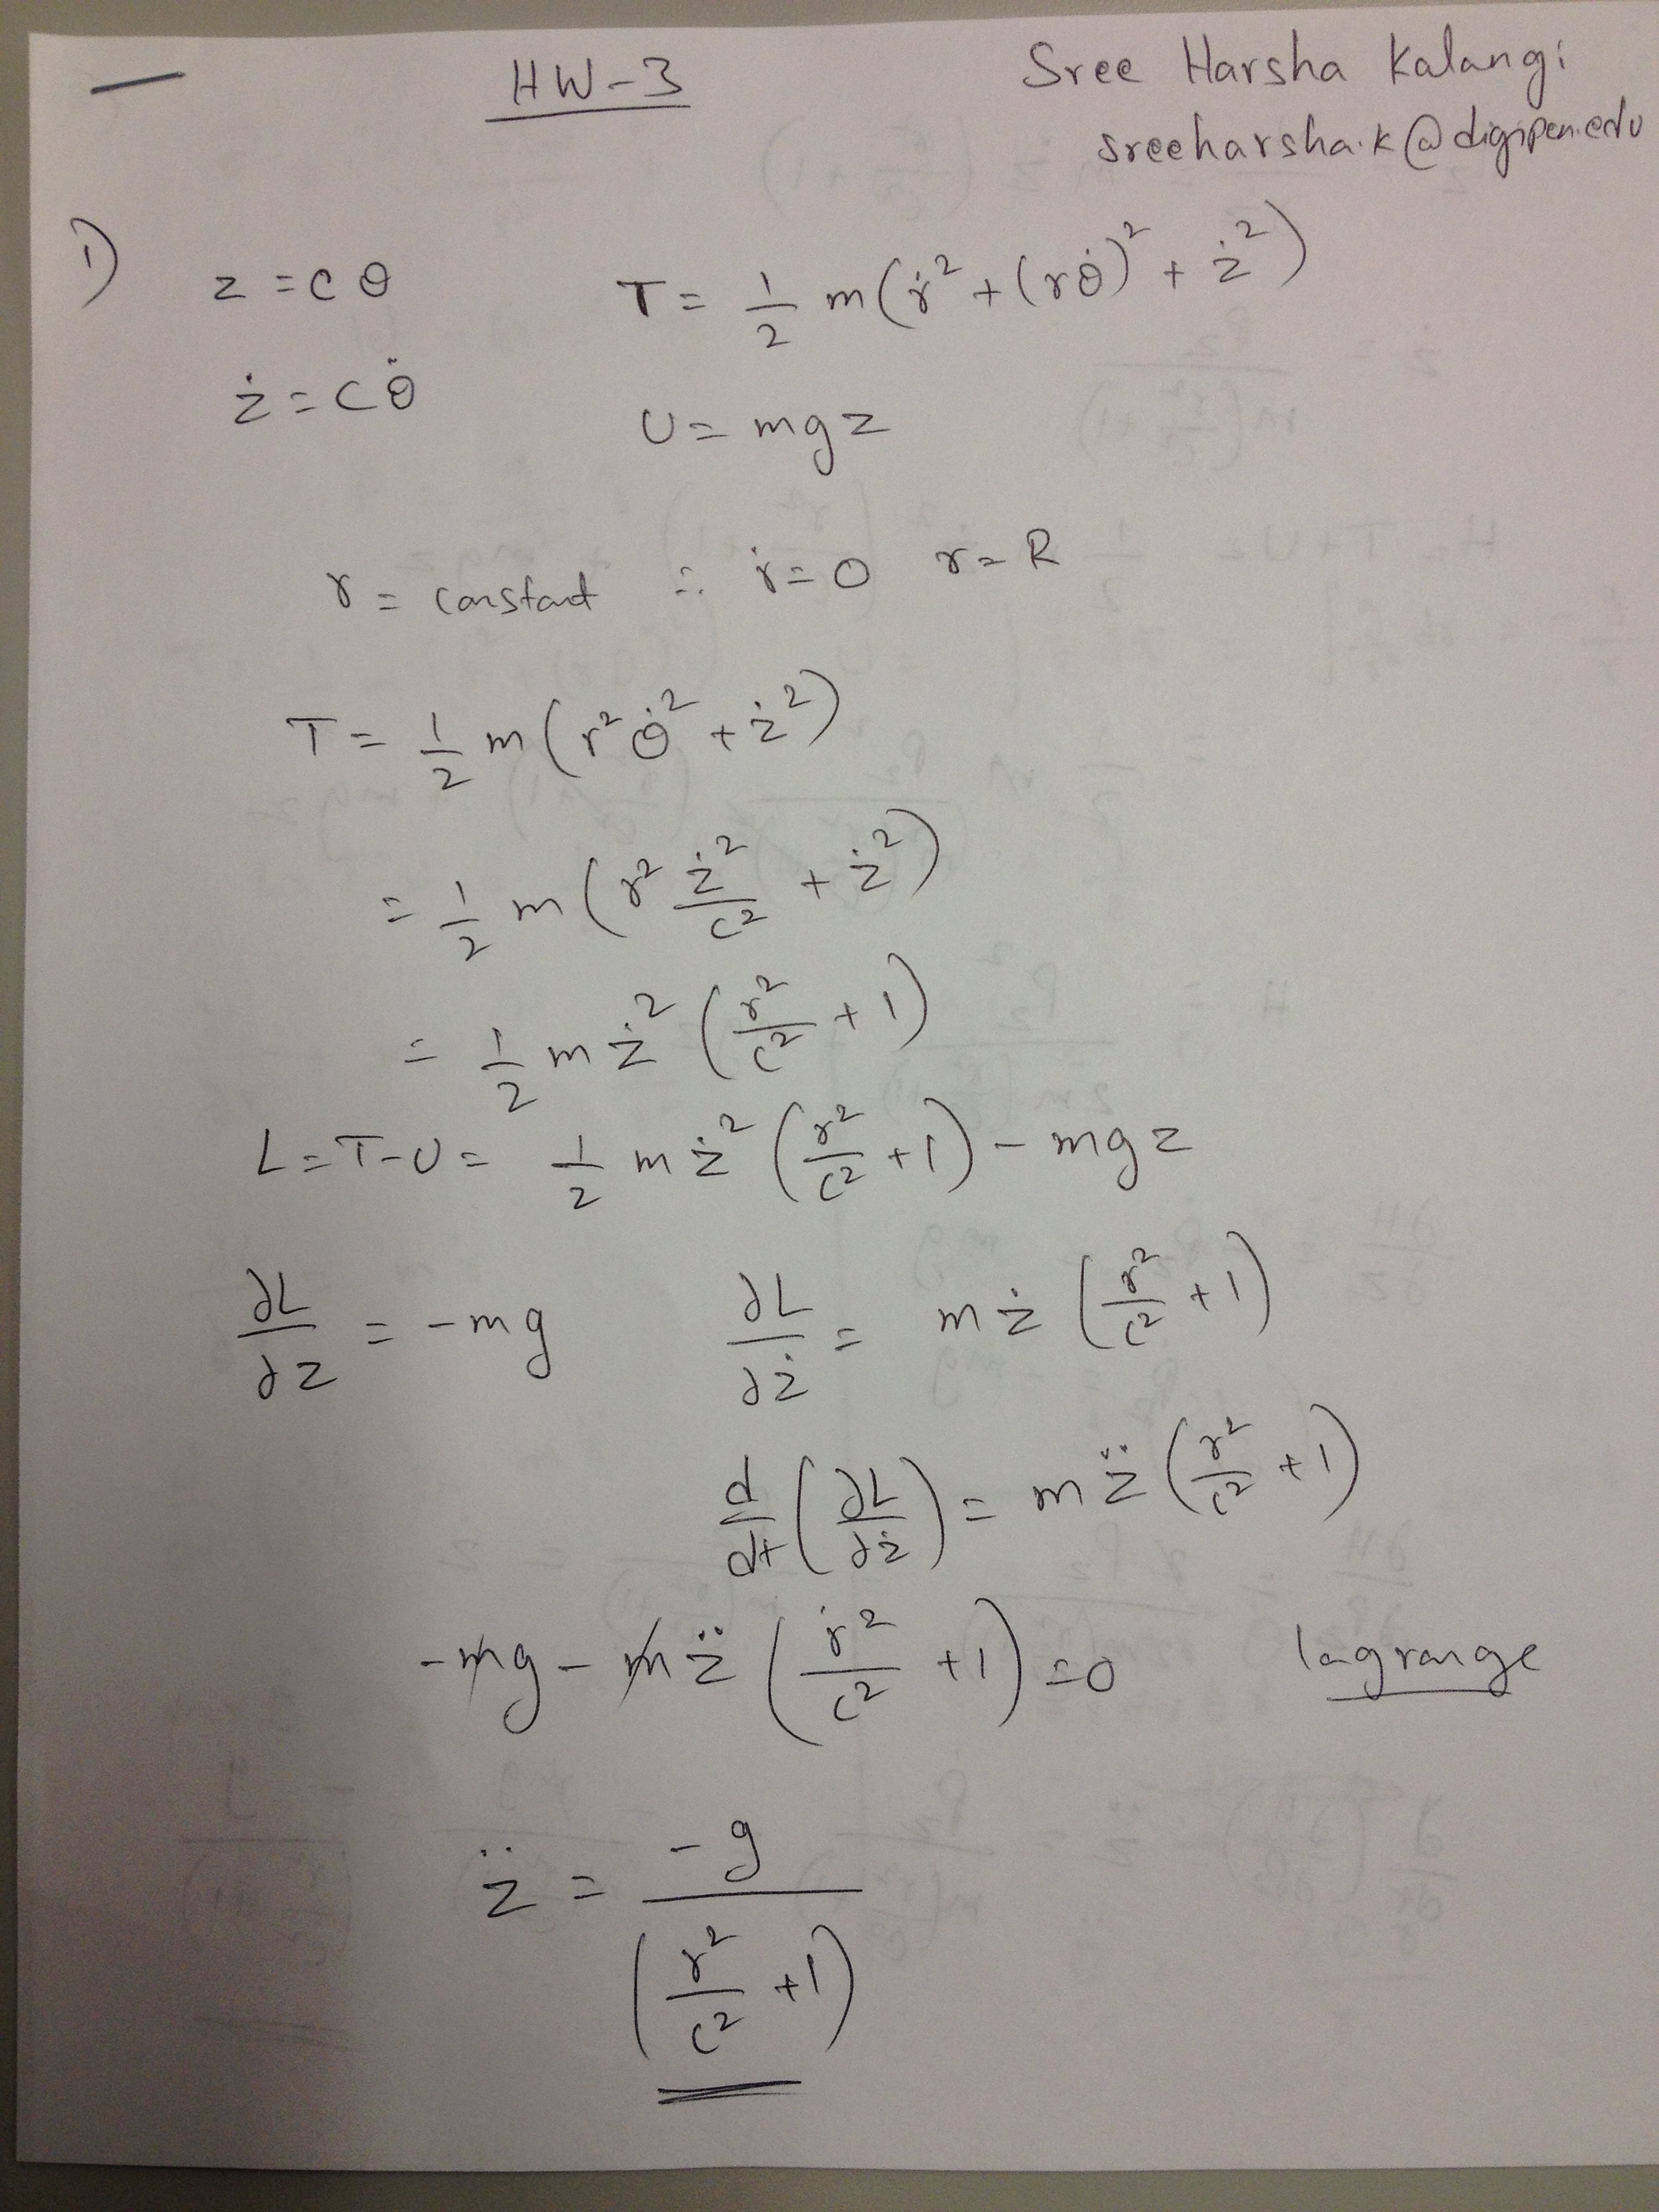 HW-3
Sree Harsha Kalangi
sreeharsha.k@digipen.edu
1) z = cθ    T = 1/2 m(ṙ² + (rθ̇)² + ż²)
ż = cθ̇    U = mgz
r = constant ∴ ṙ = 0  r = R
T = 1/2 m(r²θ̇² + ż²)
= 1/2 m(r² ż²/c² + ż²)
= 1/2 mż² (r²/c² + 1)
L = T-U = 1/2 mż² (r²/c² + 1) - mgz
∂L/∂z = -mg    ∂L/∂ż = mż (r²/c² + 1)
d/dt (∂L/∂ż) = mz̈ (r²/c² + 1)
-mg - mz̈ (r²/c² + 1) = 0    lagrange
z̈ = -g/(r²/c² + 1)